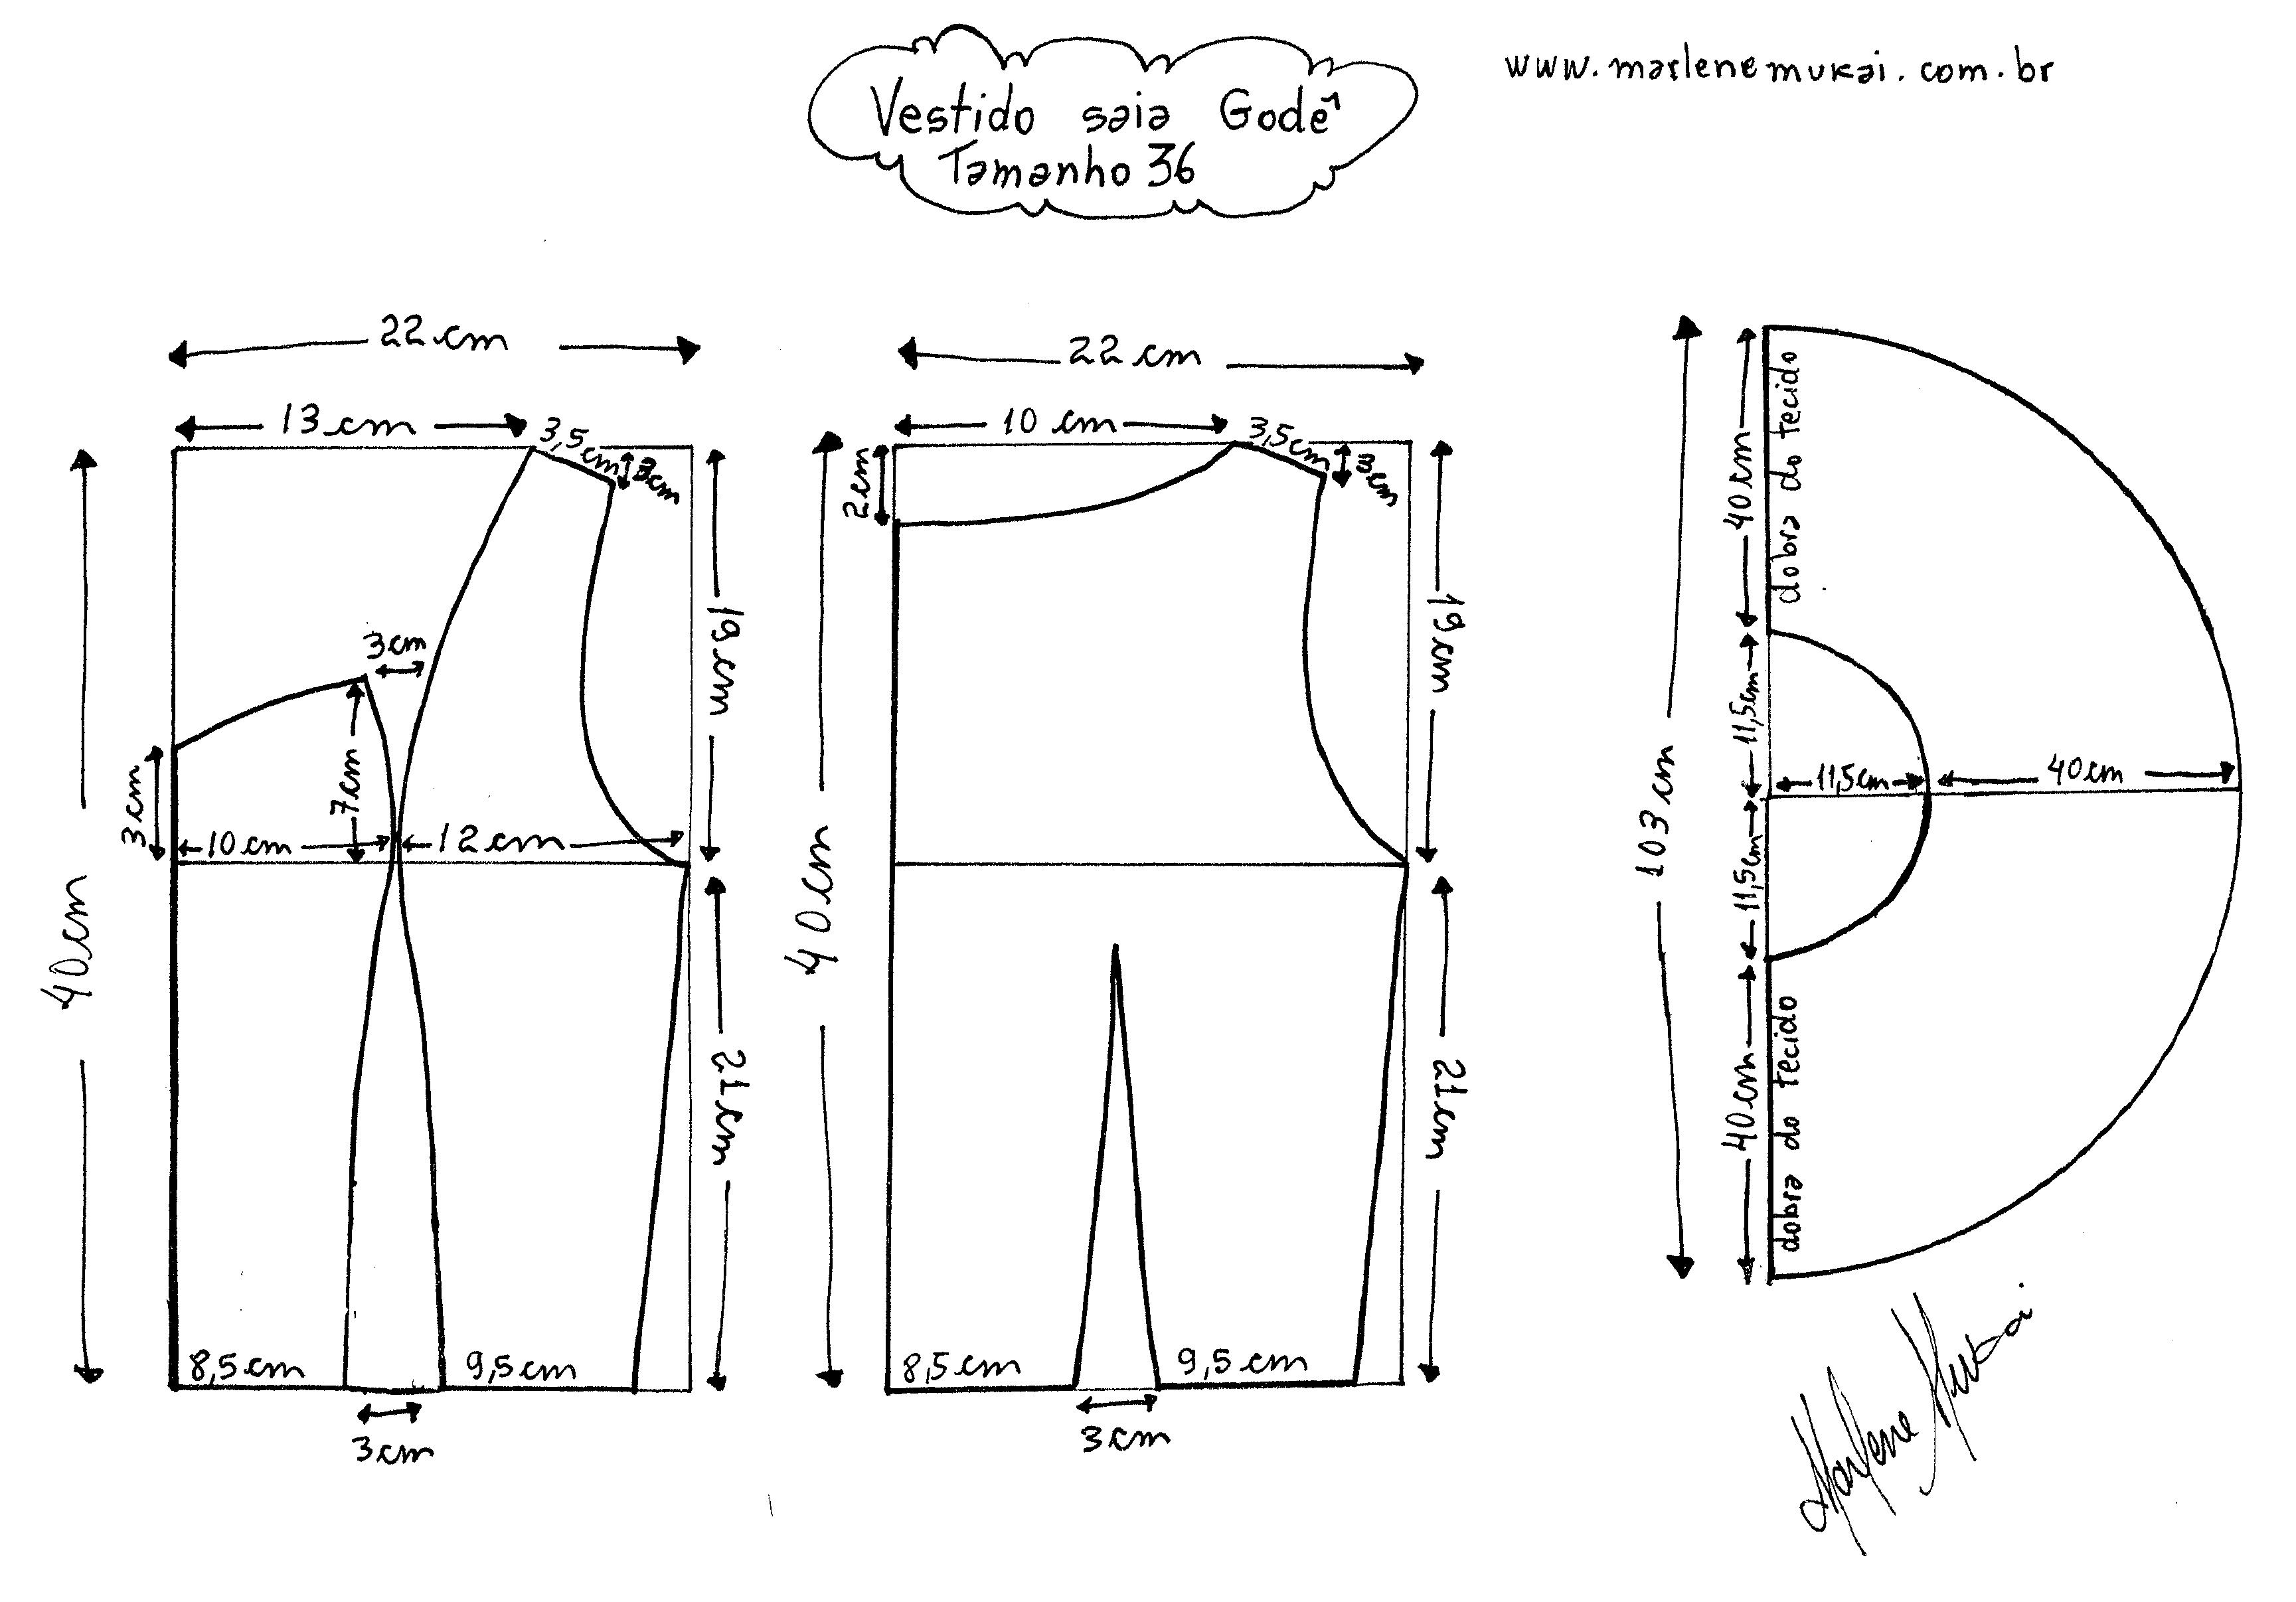 Vestido saia Godê
Tamanho 36
www.marlenemukai.com.br
22 cm
13 cm
3,5cm
3cm
40cm
19cm
3cm
7cm
3cm
10cm
12cm
21cm
8,5cm
9,5cm
3cm
22 cm
10 cm
3,5cm
3cm
2cm
40cm
19cm
21cm
8,5cm
9,5cm
3cm
103cm
40cm
dobra do tecido
11,5cm
11,5cm
40cm
11,5cm
40cm
dobra do tecido
Marlene Mukai